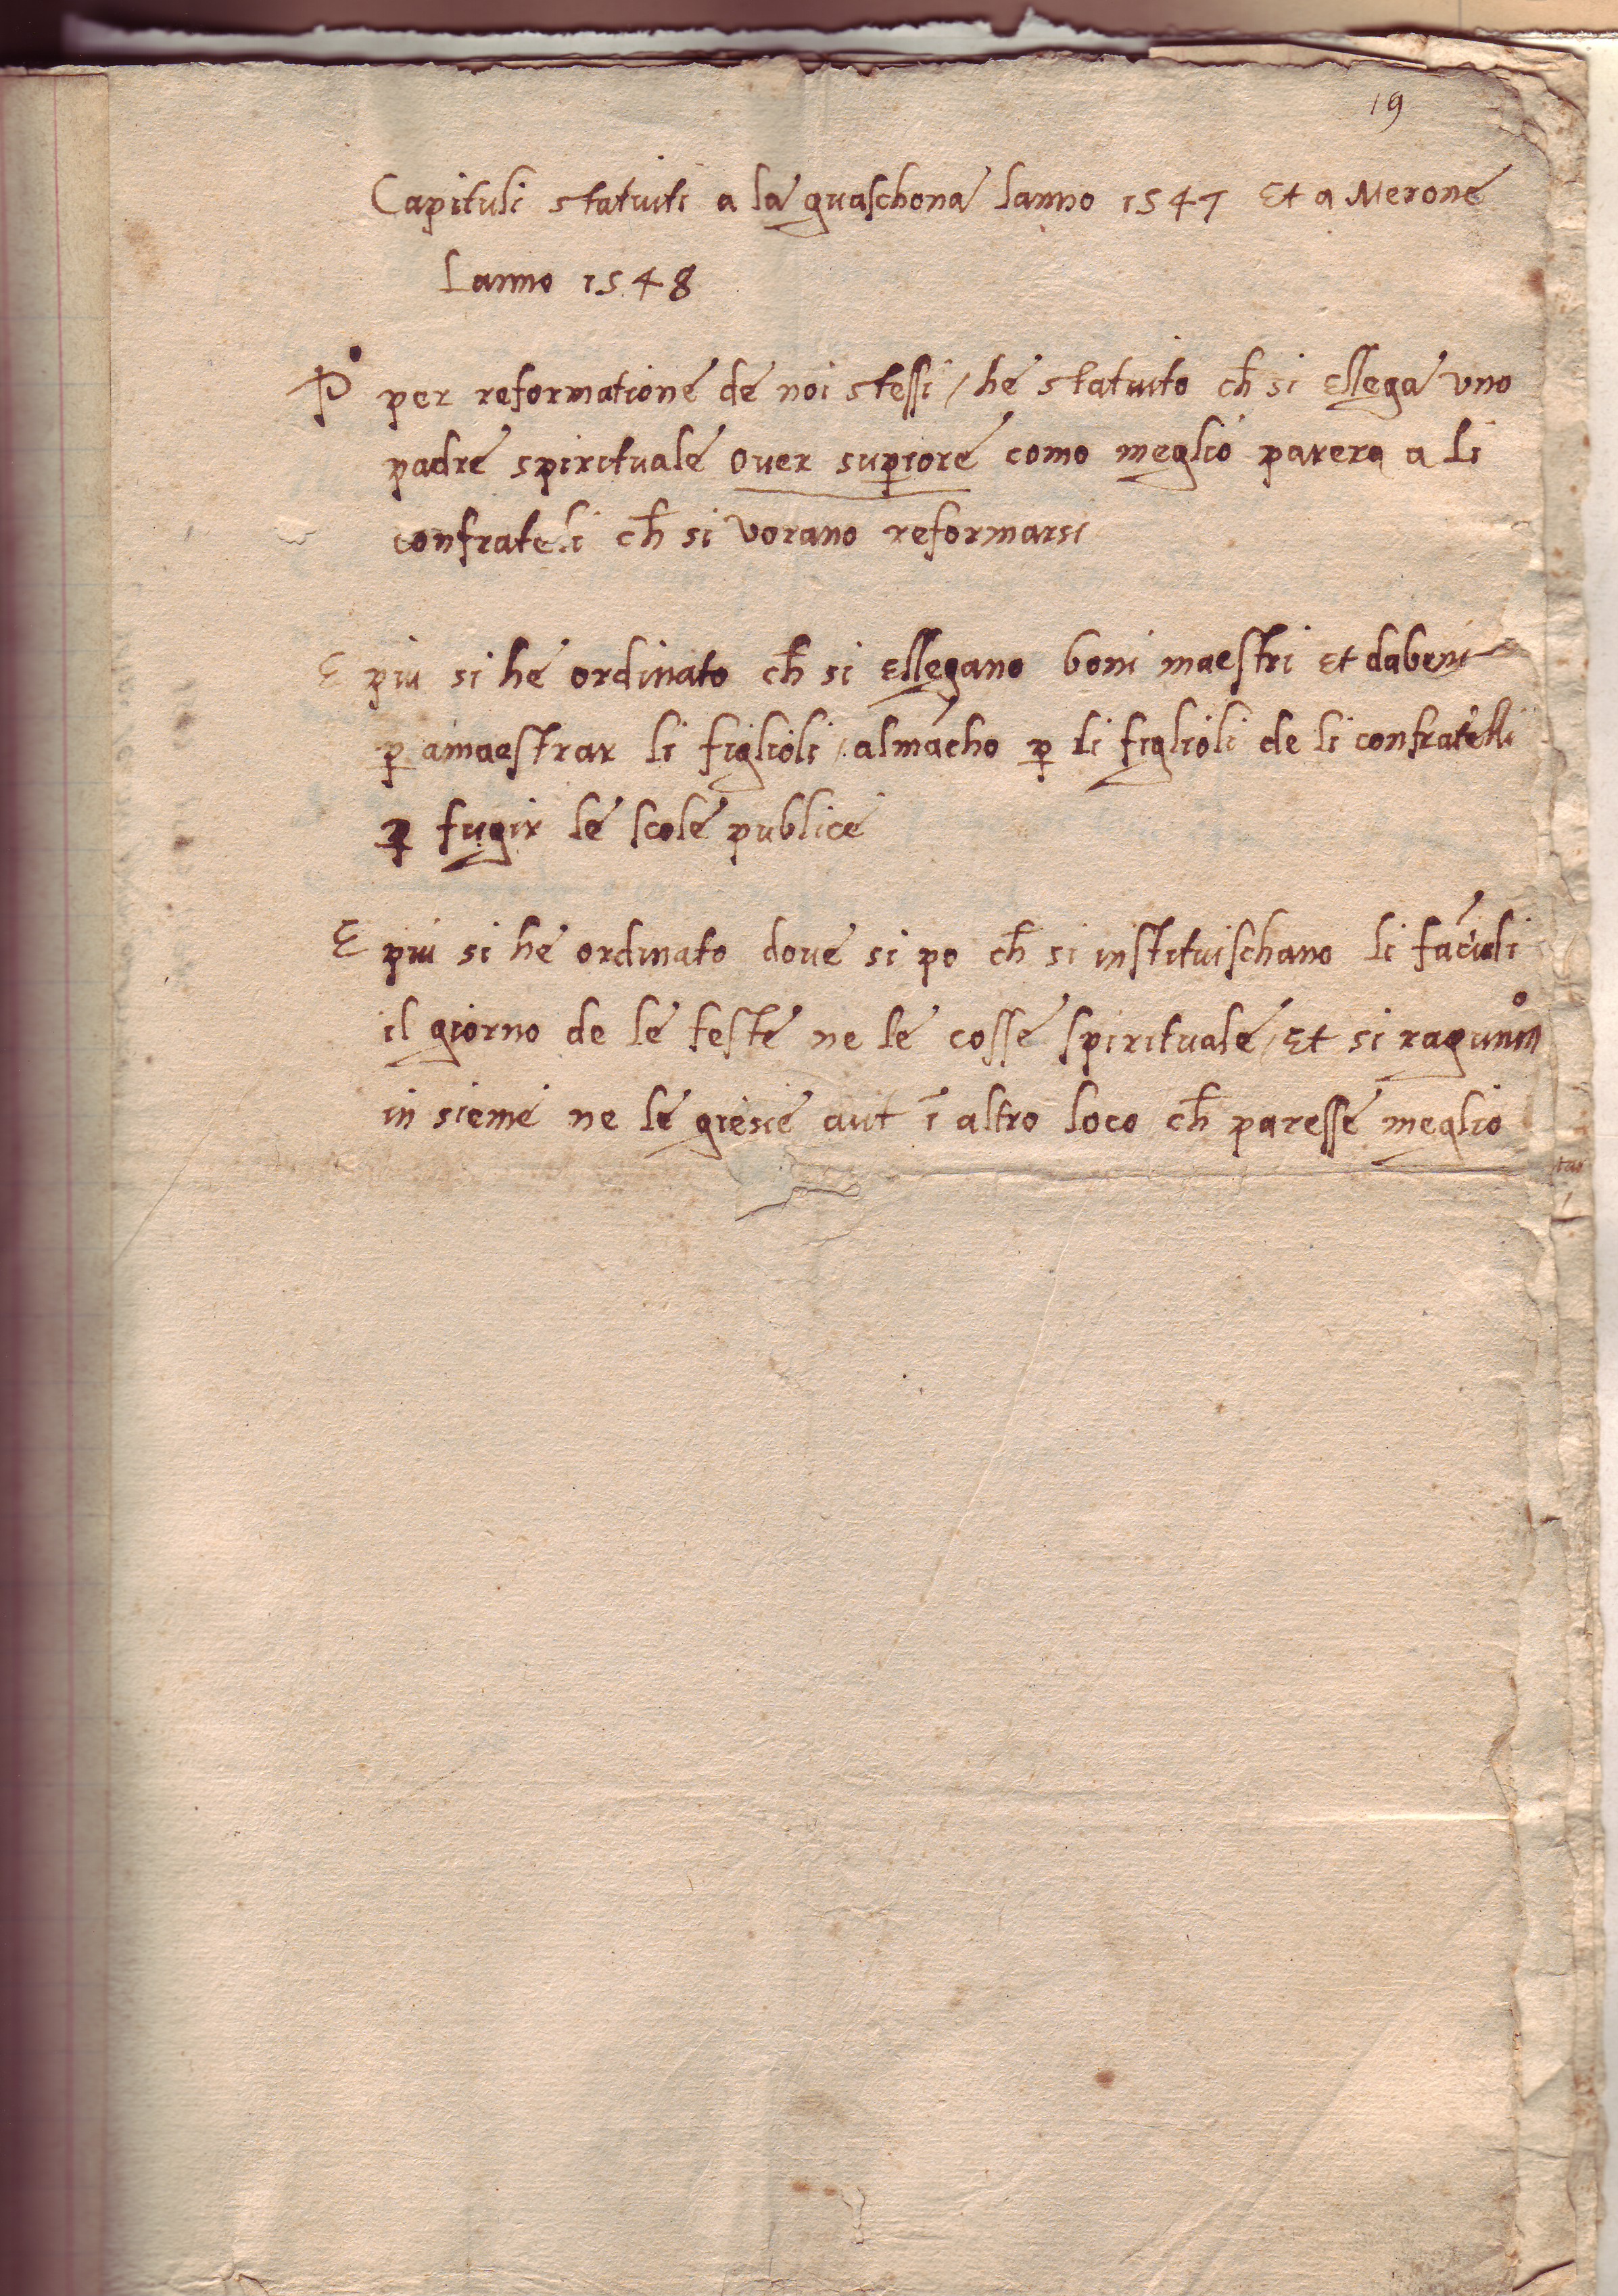 19
Capituli statuiti a la guaschona lanno 1547 Et a Merone
Lanno 1548
P° per reformatione de noi stessi / he statuito ch̄ si ellega uno
padre spirituale over sup̱iore como meglio parera a li
confrateli ch̄ si vorano reformarsi
E piu si he ordinato ch̄ si ellegano boni maestri et dabeni
p̱ amaestrar li figlioli / almācho p̱ li figlioli de li confratelli
p̱ fugir le scole publice
E piu si he ordinato dove si po ch̄ si instituischano li fāciuli
il giorno de le feste ne le cosse spirituale / Et si ragunino
in sieme ne le giesie aut ī altro loco ch̄ paresse meglio